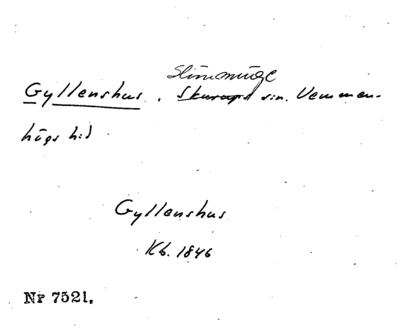 Slimminge
Gyllenshus, Skurups sn. Vemmen-
högs hd
Gyllenshus
Kb. 1846
Nr 7521.